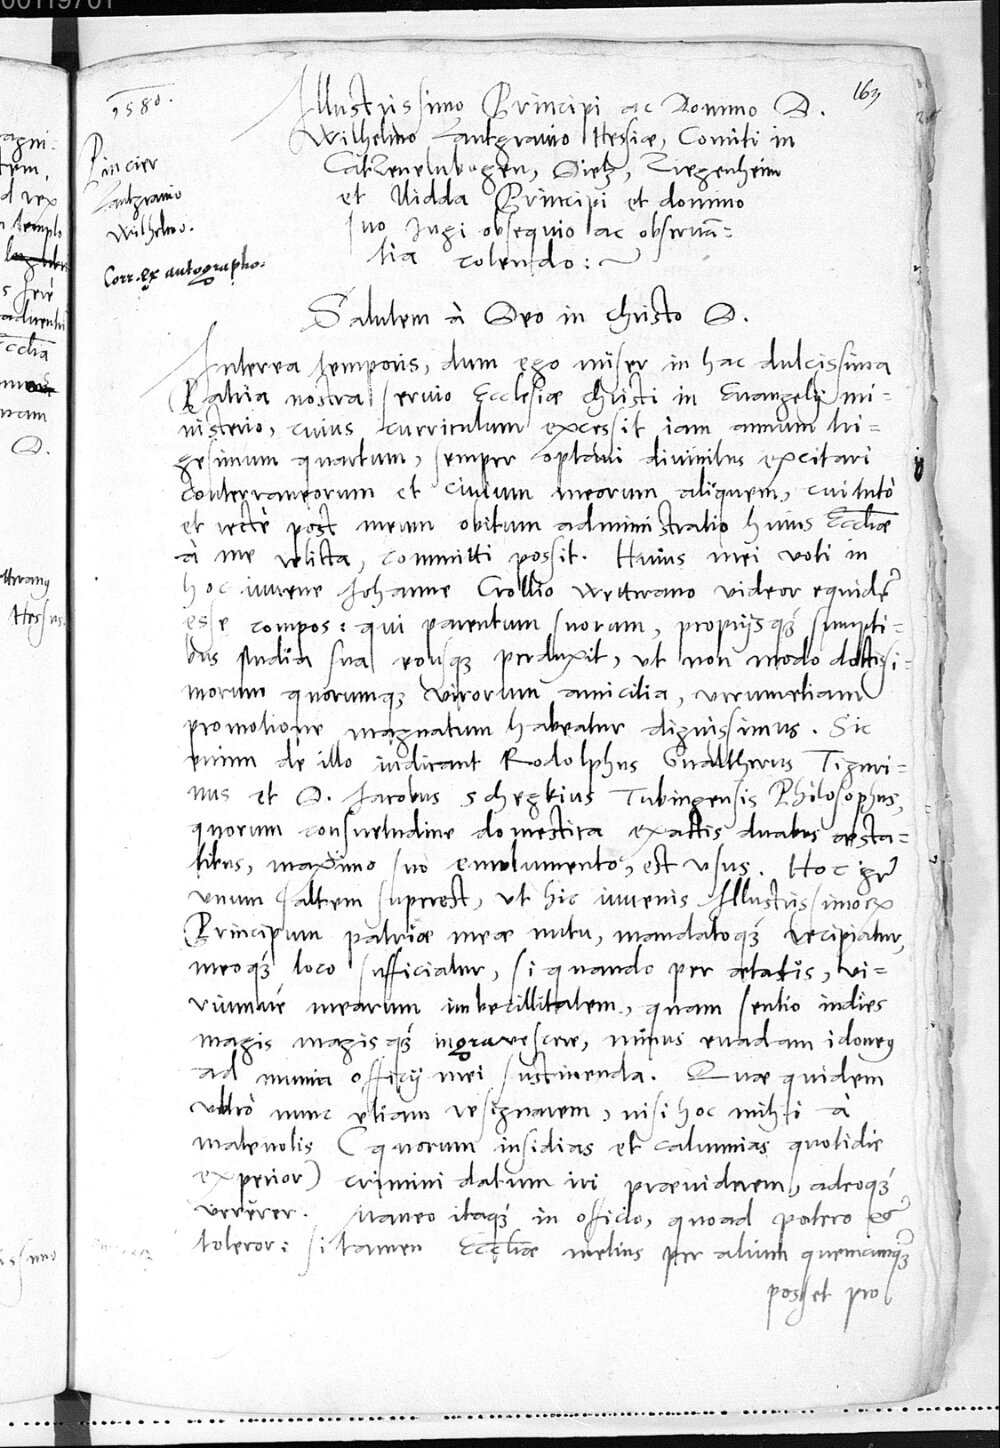 1580.
163
Pincier
Lantgravio
Wilhelmo.
Corr. ex autographo.
Illustrissimo Principi ac Domino D.
Wilhelmo Lantgravio Hessiæ, Comiti in
Catzenelnbogen, Dietz, Ziegenheim
et Nidda Principi et domino
suo jugi obsequio ac observan=
tia colendo:
Salutem à Deo in Christo D.
Interea temporis, dum ego miser in hac dulcissima
Patria nostra servio Ecclesiæ Christi in Evangelij mi=
nisterio, cuius curriculum excessit iam annum tri=
gesimum quartum, semper optavi divinitus excitari
conterraneorum et civium meorum aliquem, cui tutò
et rectè post meum obitum administratio huius Eccliæ
à me relicta, committi possit. Huius mei voti in
hoc iuvene Johanne Crollio Wetterano videor equidē
esse compos: qui parentum suorum, proprijsq́ue sumpti=
bus studia sua eousq; perduxit, ut non modo doctissi=
morum quorumq; virorum amicitia, verumetiam
promotione magnatum habeatur dignissimus. Sic
enim de illo iudicant Rodolphus Gualtherus Tiguri=
nus et D. Jacobus Schegkius Tubingensis Philosophus,
quorum consuetudine domestica exactis duabus æsta=
tibus, maximo suo emolumento, est usus. Hoc igr̃
unum saltem superest, ut hic iuvenis Illustrissimorum
Principum patriæ meæ nutu, mandatoq́; recipiatur,
meoq́; loco sufficiatur, si quando per ætatis, vi=
riumvé mearum imbecillitatem, quam sentio indies
magis magisq́; ingravescere, minus evadam idoneus
ad munia officij mei sustinenda. Quæ quidem
ultrò nunc etiam resignarem, nisi hoc mihi à
malevolis (quorum insidias et calumnias quotidie
experior) crimini datum iri præviderem, adeoq́;
vererer. Maneo itaq́; in officio, quoad potero et
toleror: si tamen Eccliæ melius per alium quemcumq;
posset pro